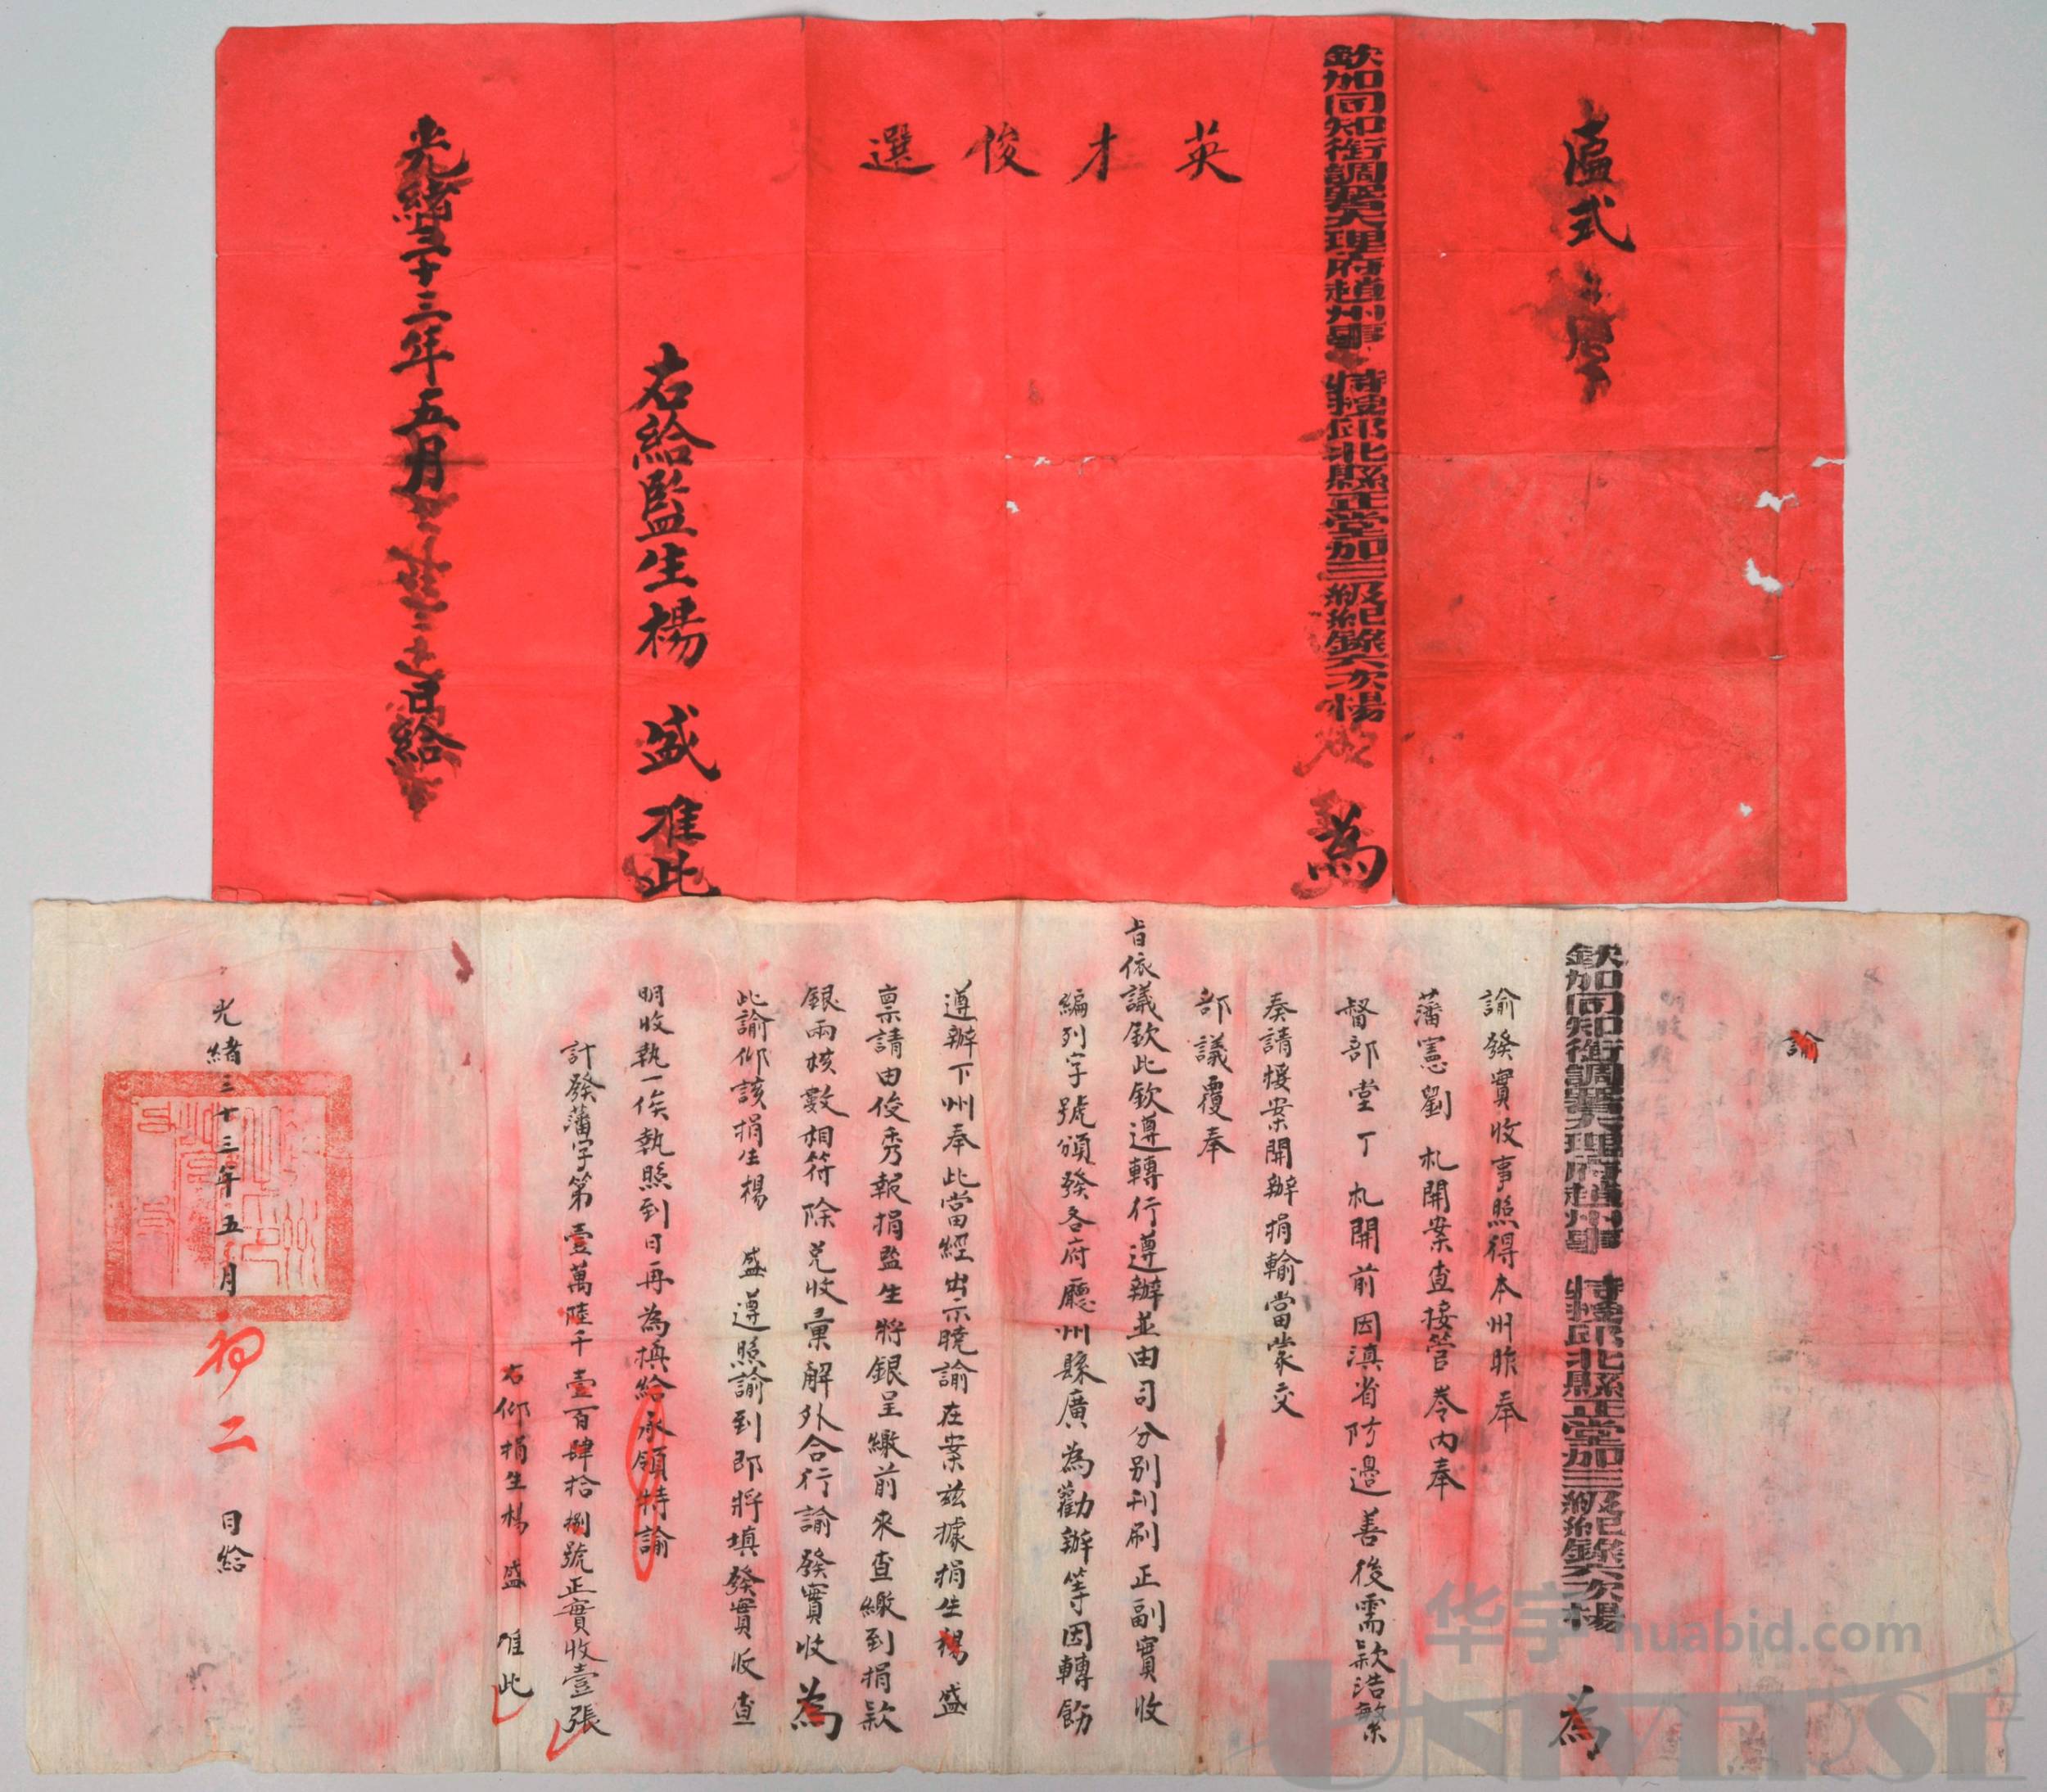 匾式
欽加同知銜調署大理府趙州事 特授邱北縣正堂加三級紀錄六次楊 為
英才俊選
右給監生楊 盛 准此
光緒三十三年五月
給
諭
欽加同知銜調署大理府趙州事 特授邱北縣正堂加三級紀錄六次楊 為
諭發實收事照得本州昨奉
藩憲劉 札開案查接管卷內奉
督部堂丁 札開前因滇省防邊善後需款浩繁
奏請援案開辦捐輸當蒙交
部議覆奉
旨依議欽此欽遵轉行遵辦並由司分別刊刷正副實收
編列字號頒發各府廳州縣廣為勸辦等因轉飭
遵辦下州奉此當經出示曉諭在案茲據捐生楊盛
稟請由俊秀報捐監生將銀呈繳前來查繳到捐款
銀兩核數相符除兌收彙解外合行諭發實收為
此諭仰該捐生楊 盛遵照諭到即將填發實收查
明收執一俟執照到日再為換給承領特諭
計發藩字第壹萬陸千壹百肆拾捌號正實收壹張
右仰捐生楊 盛 准此
光緒三十三年五月初二日給
华宇 huabid.com
UNIVERSE